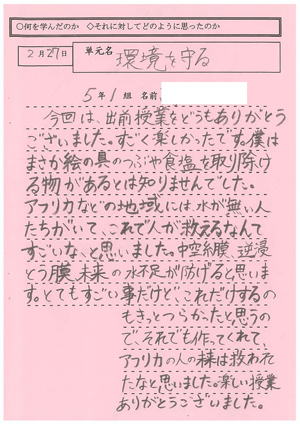 ○何を学んだのか ◇それに対してどのように思ったのか
2月27日 単元名 環境を守る
5年1組 名前
今回は、出前授業をどうもありがとう
ございました。すごく楽しかったです。僕は
まさか絵の具のつぶや食塩を取り除け
る物があるとは知りませんでした。
アフリカなどの地域には水が無い人
たちがいて、これで人が救えるなんて
すごいな、と思いました。中空糸膜、逆浸
とう膜、未来の水不足が防げると思いま
す。とてもすごい事だけど、これだけするの
もきっとつらかったと思うの
で、それでも作ってくれて、
アフリカの人の未来は救われ
たなと思いました。楽しい授業
ありがとうございました。